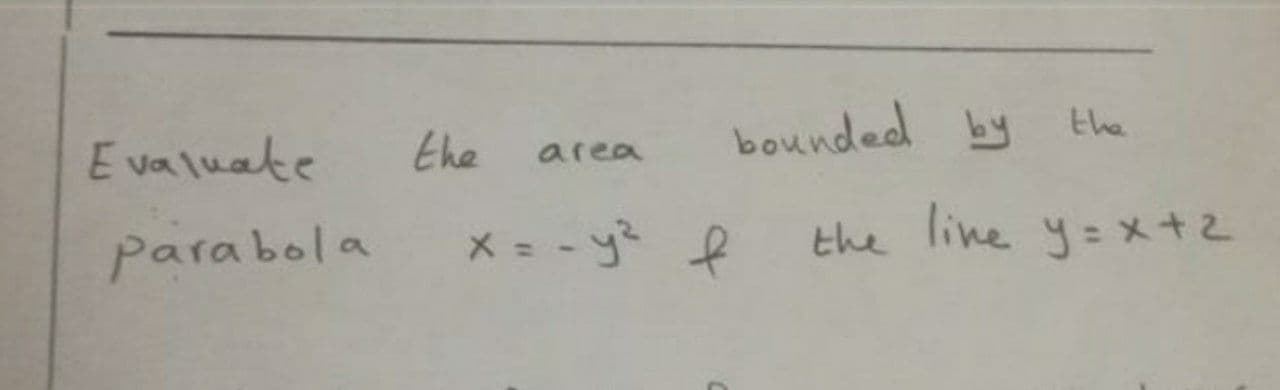 Evaluate the area bounded by the
parabola x = - y² & the line y = x + 2